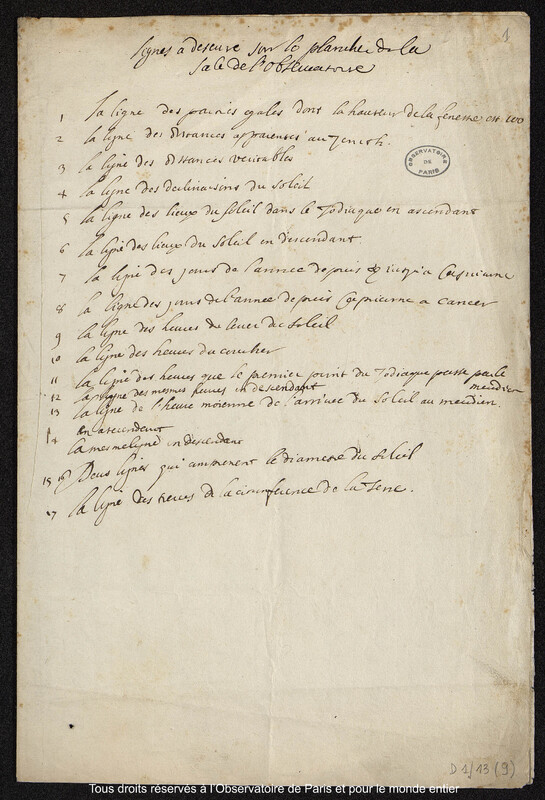 1
lignes a descrire sur le plancher de la
sale de l'observatoire
1 la ligne des parties egales dont la hauteur de la fenestre est 100
2 la ligne des distances apparentes au Zenith.
OBSERVATOIRE DE PARIS
3 la ligne des distances veritables
4 la ligne des declinaisons du soleil
5 la ligne des lieux du soleil dans le Zodiaque en ascendant
6 la ligne des lieux du soleil en descendant.
7 la ligne des jours de l'annee depuis jusqu'a Capricorne
8 la ligne des jours de l'annee depuis Capricorne a cancer
9 la ligne des heures du lever du soleil
10 la ligne des heures du coucher
11 la ligne des heures que le premier point du Zodiaque passe par le
meridien
12 la ligne des mesmes heures in descendant
13 la ligne de l'heure moienne de l'arrivee du soleil au meridien.
en ascendent
14 la mesme ligne in descendant
15 16 Deus lignes qui comprenent le diametre du soleil
17 la ligne des lieues de la circunference de la terre.
D 1/13 (9)
Tous droits réservés à l'Observatoire de Paris et pour le monde entier